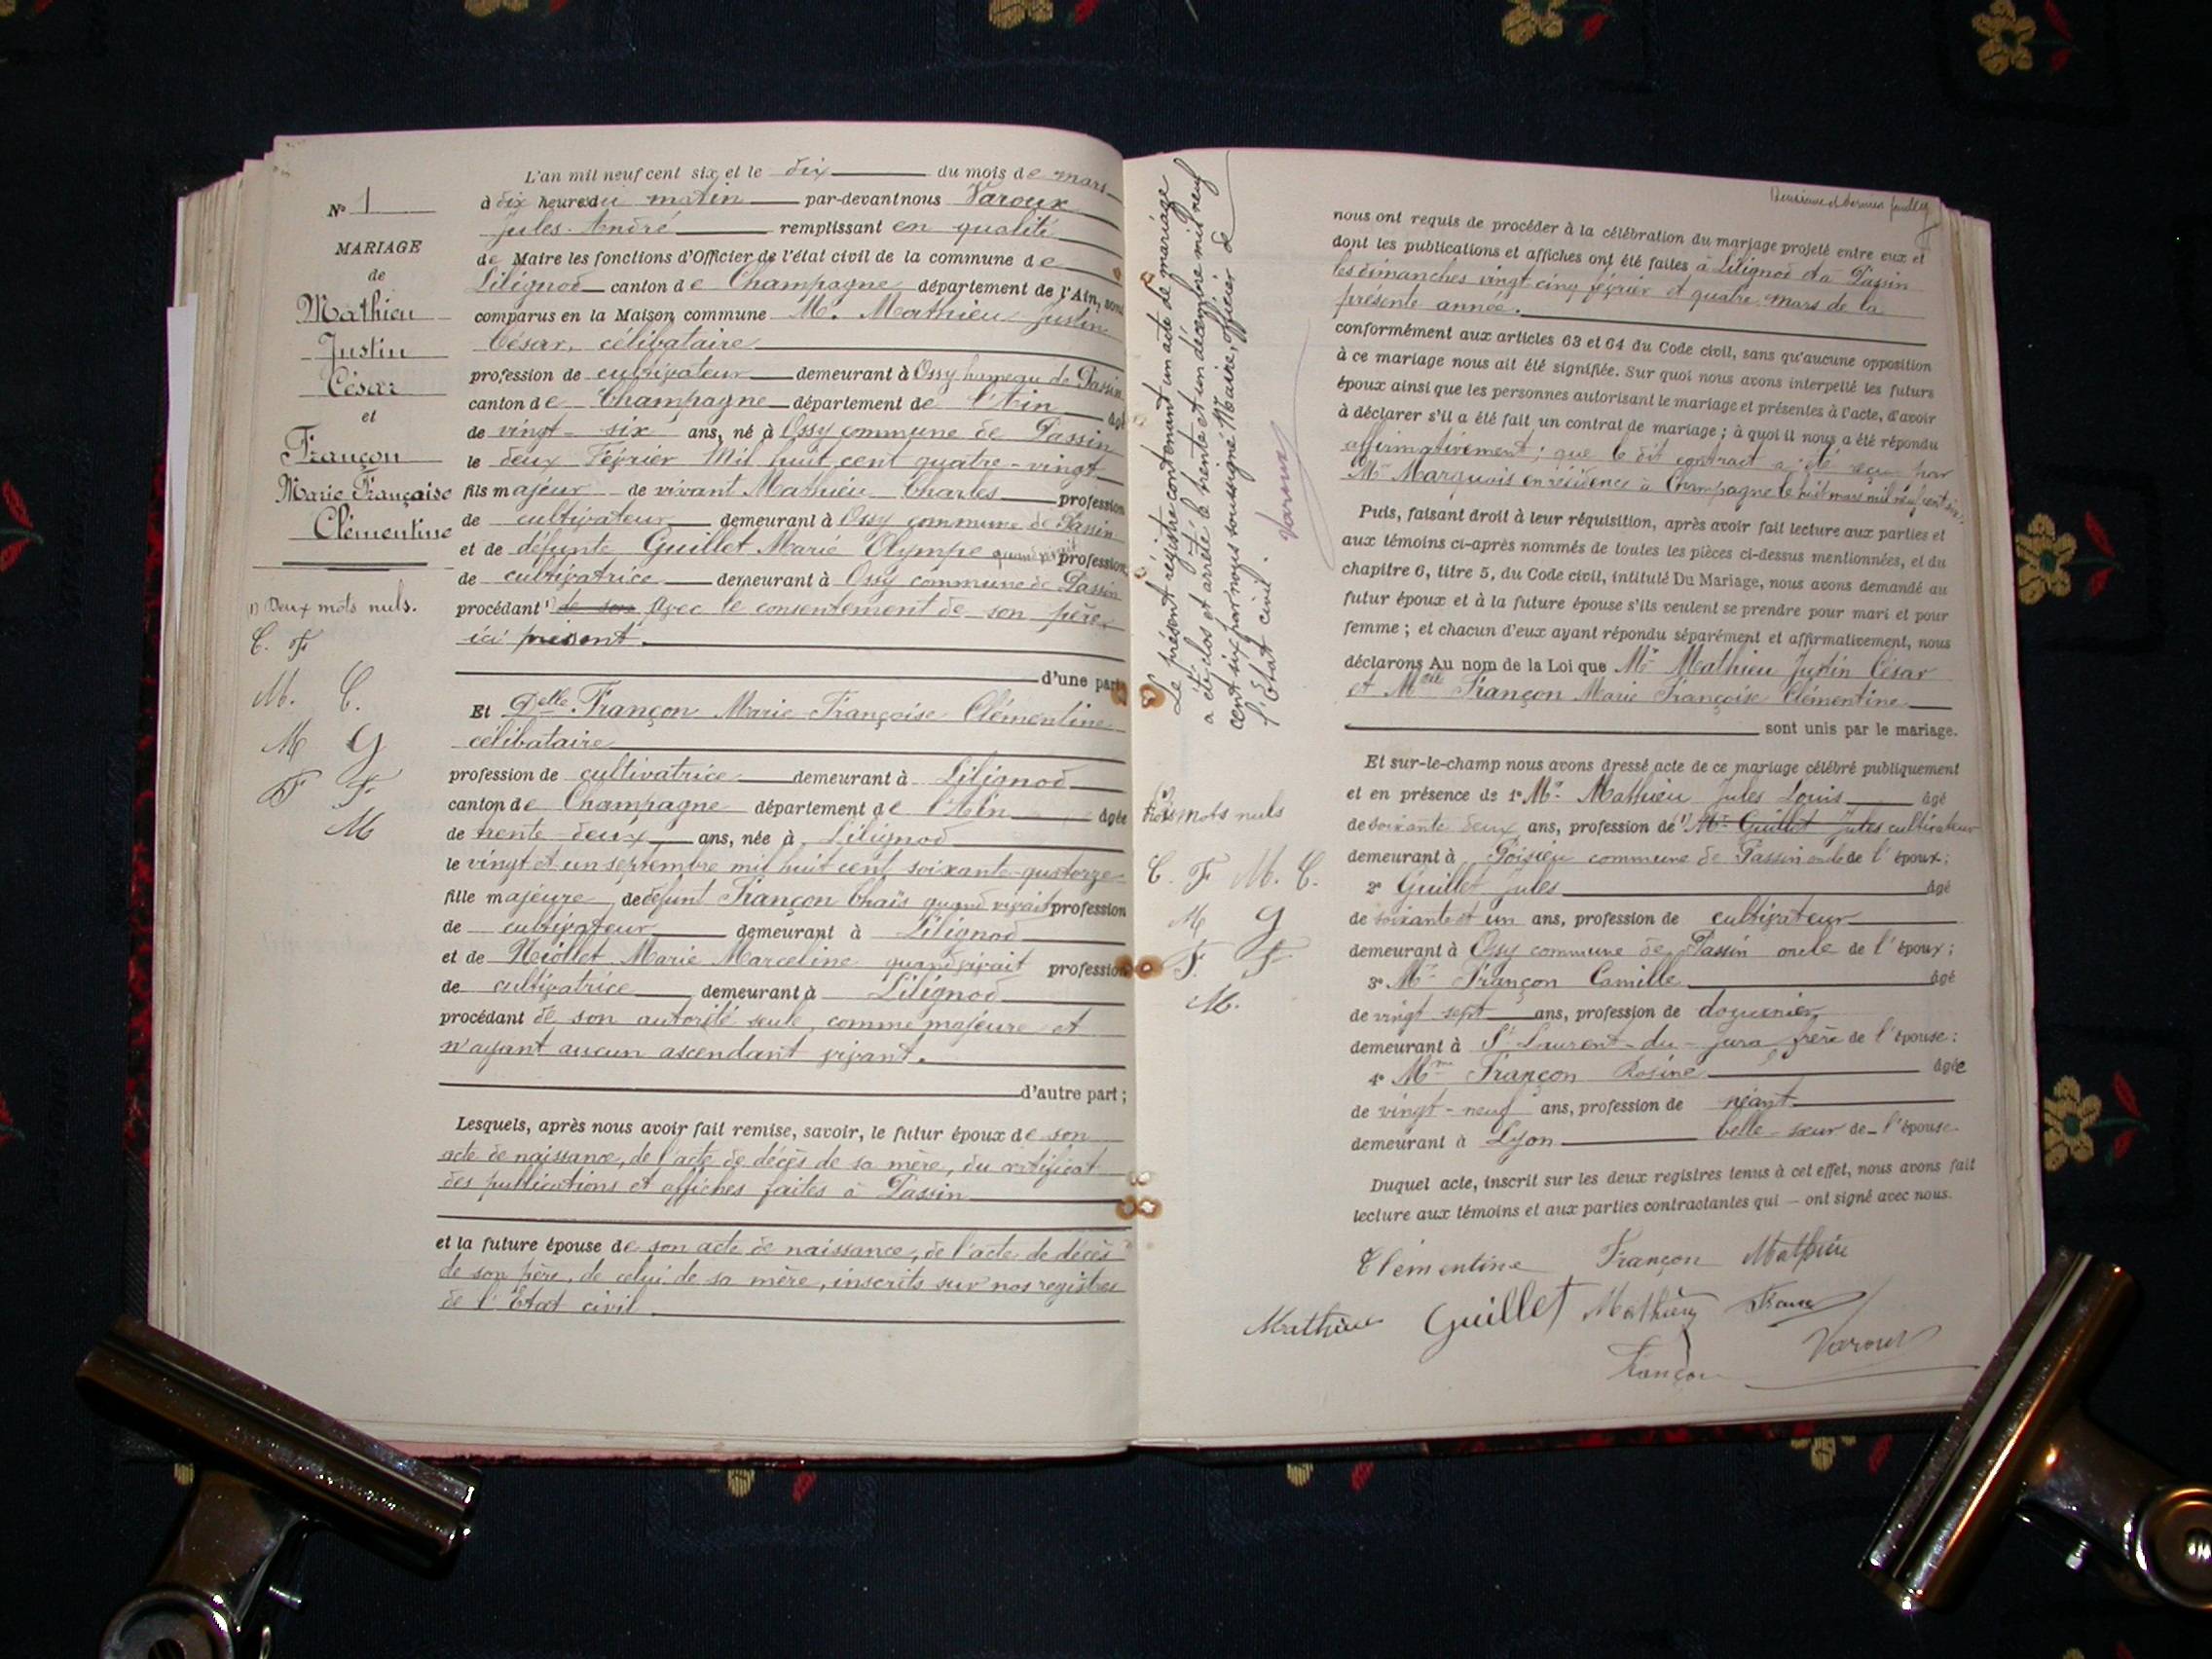 N° 1
MARIAGE
de
Mathieu
Justin
César
et
Françon
Marie Française
Clémentine
(1) Deux mots nuls.
C. F
M. C.
M G
F F
M
L'an mil neuf cent six et le dix du mois de mars
à dix heures du matin par-devant nous Varoux
Jules André remplissant en qualité
de Maire les fonctions d'Officier de l'état civil de la commune de
Lilignod canton de Champagne département de l'Ain, sont
comparus en la Maison commune M. Mathieu Justin
César, célibataire
profession de cultivateur demeurant à Ossy hameau de Passin
canton de Champagne département de l'Ain âgé
de vingt-six ans, né à Ossy commune de Passin
le deux Février Mil huit cent quatre-vingt
fils majeur de vivant Mathieu Charles profession
de cultivateur demeurant à Ossy commune de Passin
et de défunte Guillet Marie Olympe quand vivait profession
de cultivatrice demeurant à Ossy commune de Passin
procédant (1) de son avec le consentement de son père
ici présent.
d'une part
Et Delle Françon Marie Françoise Clémentine
célibataire
profession de cultivatrice demeurant à Lilignod
canton de Champagne département de l'Ain âgée
de trente-deux ans, née à Lilignod
le vingt et un septembre mil huit cent soixante-quatorze
fille majeure de défunt Françon quand vivait profession
de cultivateur demeurant à Lilignod
et de Marie Marceline quand vivait profession
de cultivatrice demeurant à Lilignod
procédant de son autorité seule, comme majeure et
n'ayant aucun ascendant vivant.
d'autre part ;
Lesquels, après nous avoir fait remise, savoir, le futur époux de son
acte de naissance, de l'acte de décès de sa mère, du certificat
des publications et affiches faites à Passin
et la future épouse de son acte de naissance, de l'acte de décès
de son père, de celui de sa mère, inscrits sur nos registres
de l'Etat civil.
Le présent registre contenant un acte de mariage
a été clos et arrêté le trente et un décembre mil neuf
cent six par nous soussigné Maire, officier de
l'Etat civil.
Varoux
Trois mots nuls
C. F M. C.
M G
F. F
M.
Deuxième et dernier feuillet
nous ont requis de procéder à la célébration du mariage projeté entre eux et
dont les publications et affiches ont été faites à Lilignod et à Passin
les dimanches vingt cinq février et quatre mars de la
présente année.
conformément aux articles 63 et 64 du Code civil, sans qu'aucune opposition
à ce mariage nous ait été signifiée. Sur quoi nous avons interpellé les futurs
époux ainsi que les personnes autorisant le mariage et présentes à l'acte, d'avoir
à déclarer s'il a été fait un contrat de mariage ; à quoi il nous a été répondu
affirmativement ; que le dit contrat a été reçu par
Me Marquois en résidence à Champagne le huit mars mil neuf cent six.
Puis, faisant droit à leur réquisition, après avoir fait lecture aux parties et
aux témoins ci-après nommés de toutes les pièces ci-dessus mentionnées, et du
chapitre 6, titre 5, du Code civil, intitulé Du Mariage, nous avons demandé au
futur époux et à la future épouse s'ils veulent se prendre pour mari et pour
femme ; et chacun d'eux ayant répondu séparément et affirmativement, nous
déclarons Au nom de la Loi que Mr Mathieu Justin César
et Melle Françon Marie Françoise Clémentine
sont unis par le mariage.
Et sur-le-champ nous avons dressé acte de ce mariage célébré publiquement
et en présence de 1° Mr Mathieu Jules Louis âgé
de soixante deux ans, profession de (1) Mr Guillet Jules cultivateur
demeurant à Poisieu commune de Passin oncle de l'époux ;
2° Guillet Jules âgé
de soixante et un ans, profession de cultivateur
demeurant à Ossy commune de Passin oncle de l'époux ;
3° Mr Françon Camille âgé
de vingt sept ans, profession de douanier
demeurant à St Laurent-du-Jura frère de l'épouse :
4° Mme Françon Rosine âgée
de vingt-neuf ans, profession de néant
demeurant à Lyon belle-sœur de l'épouse
Duquel acte, inscrit sur les deux registres tenus à cet effet, nous avons fait
lecture aux témoins et aux parties contractantes qui ont signé avec nous.
Clémentine Françon Mathieu
Mathieu Guillet Mathieu
Françon Varoux